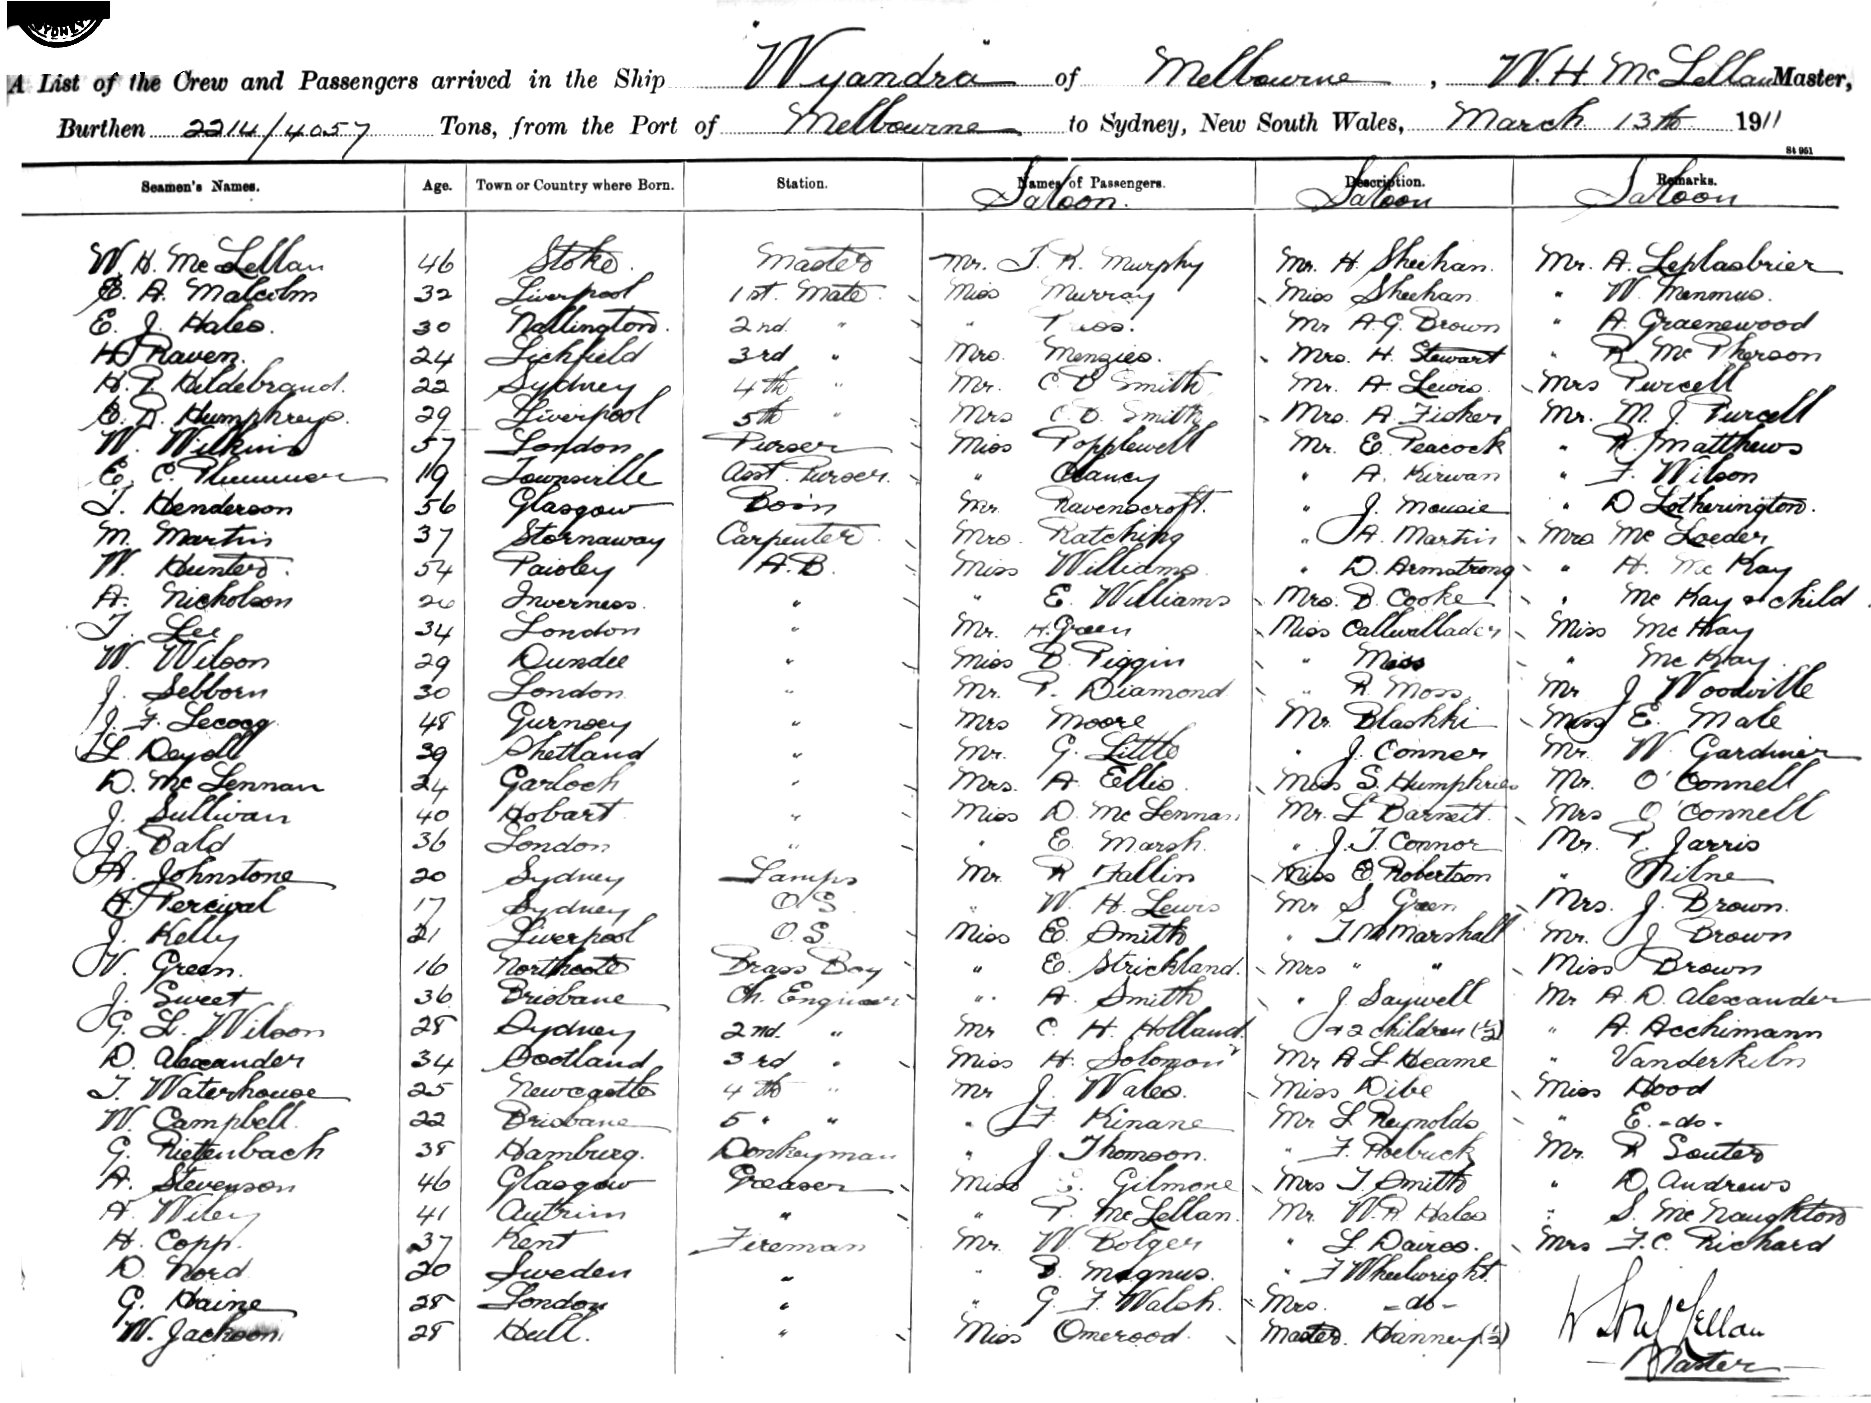 SYDNEY
A List of the Crew and Passengers arrived in the Ship Wyandra of Melbourne, W. H. McLellan Master,
Burthen 2214/4057 Tons, from the Port of Melbourne to Sydney, New South Wales, March 13th 1911
St 951
Seamen's Names. Age. Town or Country where Born. Station. Names of Passengers. Description. Remarks.
Saloon. Saloon Saloon
W. H. McLellan 46 Stoke. Master Mr. J. R. Murphy Mr. H. Sheehan. Mr. A. Leplasbrier
E. A. Malcolm 32 Liverpool 1st. Mate. Miss Murray Miss Sheehan " W. Menmus.
E. J. Hales. 30 Nallington. 2nd. " " Mr A. G. Brown " A. Graenewood
H. Raven. 24 Lichfield 3rd " Mrs. Menzies. Mrs. H. Stewart " R. McPherson
H. P. Hildebrand. 22 Sydney 4th " Mr. C D Smith Mr. A. Lewis. Mrs Purcell
E. R. Humphreys. 29 Liverpool 5th " Mrs C. D. Smith Mrs. A. Fisher Mr. M. J. Purcell
W. Wilkins 57 London Purser Miss Popplewell Mr. E. Peacock " R. Matthews
E. C. Plummer 19 Townsville Asst. Purser. " Clancy " A. Kirwan " F. Wilson
T. Henderson 56 Glasgow Bosn Mr. Ravenscroft. " J. Mousie " D Lotherington.
M. Martin 37 Stornaway Carpenter. Mrs. Ratching " A. Martin Mrs McLoeder
W. Hunter. 54 Paisley A.B. Miss Williams. " D. Armstrong " H. McKay
A. Nicholson 26 Inverness. " " E. Williams Mrs. B. Cooke " McKay & child.
T. Lee 34 London " Mr. H. Green Miss Callwallader Miss McKay
W. Wilson 29 Dundee " Miss B. Piggin " Moss " McKay.
J. Sebborn 30 London. " Mr. P. Diamond " R. Moss. Mr J Woodville
J. F. Lecocq. 48 Gurnsey " Mrs Moore Mr. Blashki Miss E. Male
L. Deyell 39 Shetland " Mr. G. Little " J. Conner Mr. W. Gardiner
D. McLennan 24 Garloch " Mrs. A Ellis. Miss S. Humphries Mr. O'Connell
J. Sullivan 40 Hobart " Miss D. McLennan Mr. L Barnett. Mrs O'Connell
J. Bald 36 London " " E. Marsh. " J. T. Connor Mr. P. Jarris
A. Johnstone 20 Sydney Lamps Mr. R Fallin Miss E. Robertson " Milne
H. Percival 17 Sydney O.S. " W. H. Lewis Mr S. Green Mrs. J. Brown.
J. Kelly 21 Liverpool O.S. Miss E. Smith " T. M Marshall Mr. J Brown
V. Green. 16 Northcote Brass Boy " E. Strickland. Mrs " " Miss Brown
J. Sweet 36 Brisbane Ch. Engineer " A. Smith " J. Saywell Mr A. D. Alexander
G. L. Wilson 28 Sydney 2nd. " Mr C. H. Holland. & 2 children (½) " A. Acchimann
D. Alexander 34 Scotland 3rd " Miss H. Solomon Mr A L Hearne " Vanderkiln
T. Waterhouse 25 Newcastle 4th " Mr J. Wales. Miss Dibe Miss Hood
W. Campbell. 22 Brisbane 5 " " " F. Kinane Mr L Reynolds " E. -do-
G. Rietenbach 38 Hamburg. Donkeyman " J. Thomson. " F. Roebuck Mr. R Souter
A. Stevenson 46 Glasgow Greaser Miss Gilmore Mrs T Smith " D. Andrews
A. Wiley 41 Antrim " " P. McLellan. Mr. W. R. Hales " S. McNaughton
H. Copp. 37 Kent Fireman Mr. W. Bolger " L. Daires. Mrs F. C. Richard
D. Nord 20 Sweden " " B. Magnus. " F Wheelwright.
G. Haine 28 London " " G. F. Walsh. Mrs. -do-
W. Jackson 28 Hull. " Miss Omerood. Master. Hannery (½)
W H McLellan
Master